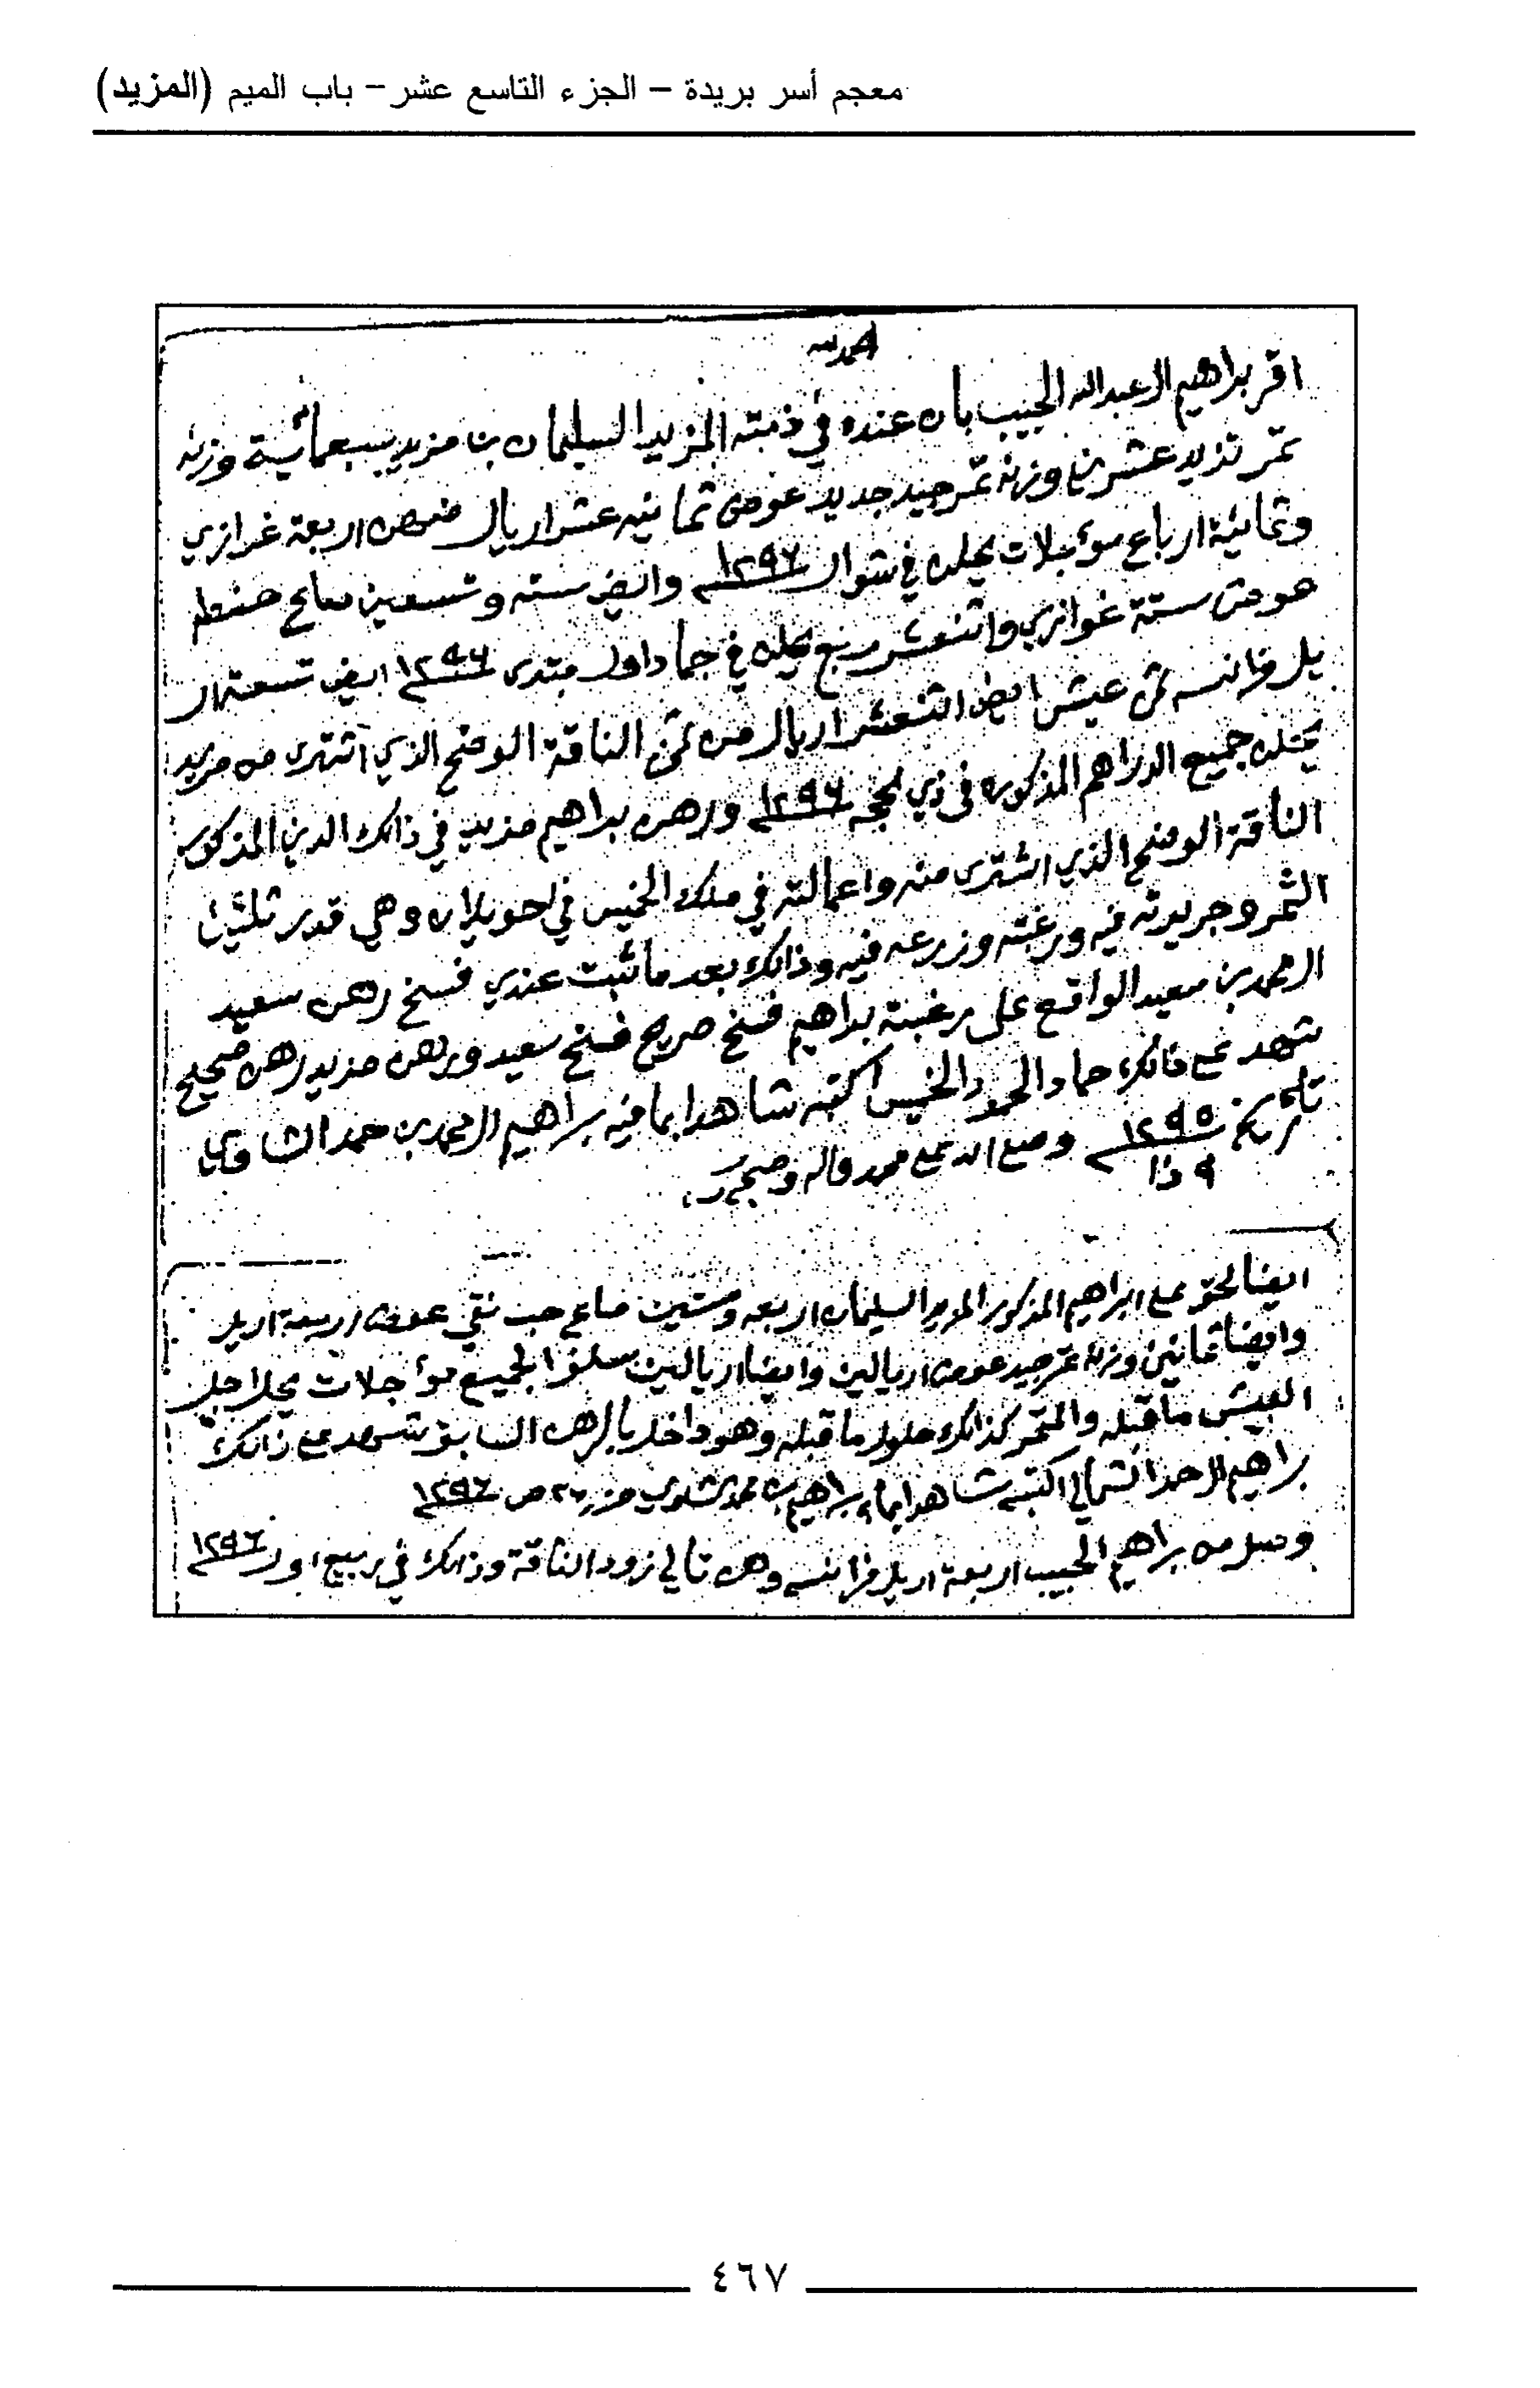 معجم أسر بريدة – الجزء التاسع عشر – باب الميم (المزيد)
الحمد لله
اقر براهيم ال عبدالله الحبيب بان عنده في ذمته المزيد السليمان بن مزيد سبعمائية وزنة
تمر تزيد عشرين وزنة تمر جيد جديد عوض ثمانيه عشر اريال منهن اربعة غوازي
وثمانية ارباع مؤجلات يحلن في شوال ١٢٩٦ وايض سته وتسعين صاع حنطه
عوض ستة غوازي واثنعشر ربع يحلن في جماد اول مبتدى ١٢٩٦ ايض تسعة ار
يل فرانسه ثمن عيش ايض اثنعشر اريال من ثمن الناقة الوضح الذي اشترى من مزيد
يحلن جميع الدراهم المذكوره في ذي لحجه ١٢٩٦ ورهن براهيم مزيد في ذالك الدين المذكور
الناقة الوضح الذي اشترى منه واعمالته في ملك الخميس في لحويلان وهي قدر ثلثين
الثمر وجريرته فيه ورغبته وزرعه فيه وذالك بعد ما ثبت عندي فسخ رهن سعيد
ال محمد بن سعيد الواقع على رغبته براهيم فسخ صريح فسخ سعيد ورهن مزيد رهن صحيح
شهد على ذالك حماد الحمود الخميس اكتبه شاهدا بما فيه براهيم ال محمد بن حمد الشاوي
تاريخ ١٢٩٥ وصلى الله على محمد واله وصحبه
٩ ذا
ايضا لحق على ابراهيم المذكور المزيد السليمان اربعه وستين صاع حب نقي عوض اربعة اريل
وايضا ثمانين وزنة تمر جيد عوض اريالين وايضا اريالين سلف الجميع مؤاجلات يحل اجل
العيش ما قبله والتمر كذالك حلول ما قبله وهو داخل بالرهن السابق شهد على ذالك
براهيم ال حمد الشمالي اكتبه شاهدا به براهيم بن محمد الشاوي ٢٦ ص ١٢٩٦
وصل من براهيم الحبيب اربعة اريل فرانسه وهن تالي زود الناقة وذالك في ربيع اول ١٢٩٦
٤٦٧